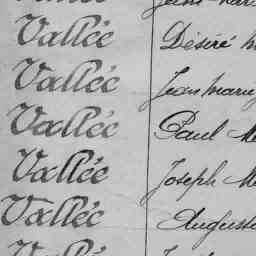 Vallée Désiré
Vallée Jean marie
Vallée Paul
Vallée Joseph
Vallée Auguste
Vallée